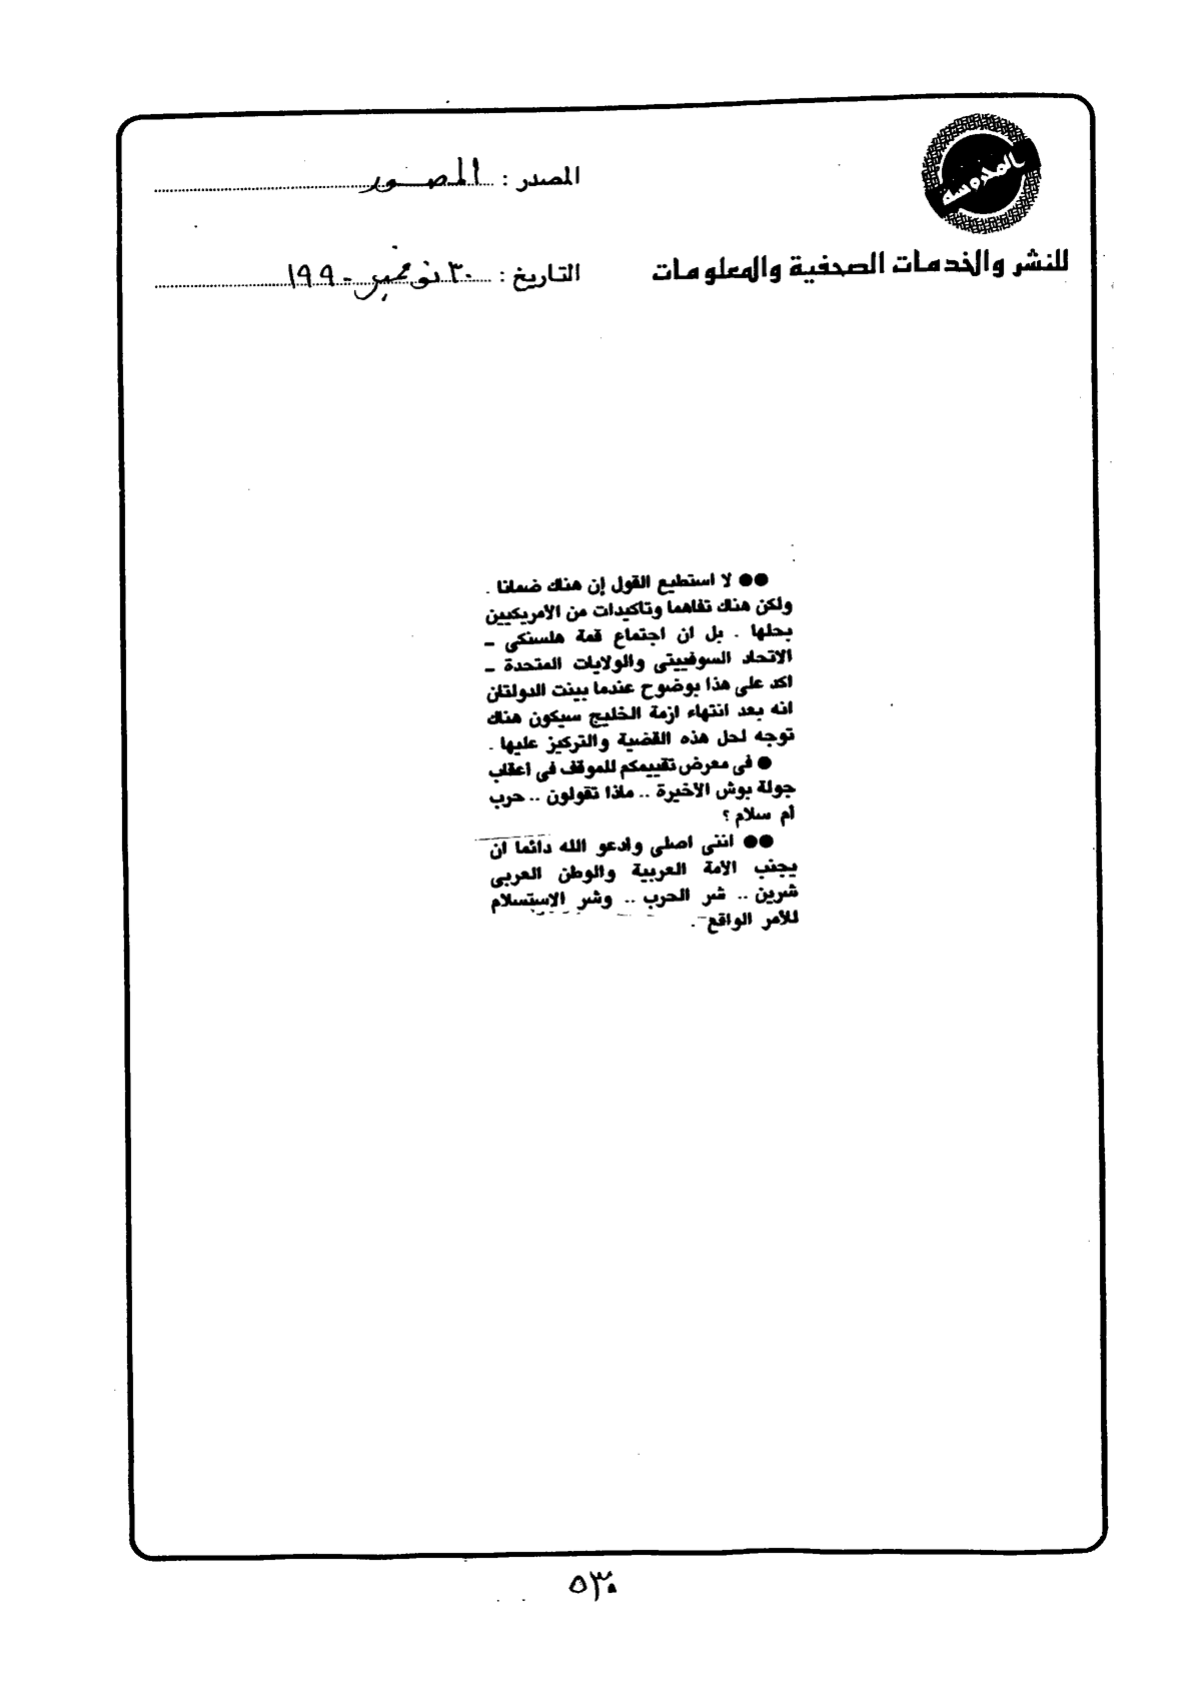 المحروسة
للنشر والخدمات الصحفية والمعلومات
المصدر : المصور
التاريخ : ٣٠ نوفمبر ١٩٩٠
●● لا استطيع القول إن هناك ضمانا .
ولكن هناك تفاهما وتاكيدات من الأمريكيين
بحلها . بل ان اجتماع قمة هلسنكى ـ
الاتحاد السوفييتى والولايات المتحدة ـ
اكد على هذا بوضوح عندما بينت الدولتان
انه بعد انتهاء ازمة الخليج سيكون هناك
توجه لحل هذه القضية والتركيز عليها .
● فى معرض تقييمكم للموقف فى اعقاب
جولة بوش الأخيرة .. ماذا تقولون .. حرب
أم سلام ؟
●● اننى اصلى وادعو الله دائما ان
يجنب الأمة العربية والوطن العربى
شرين .. شر الحرب .. وشر الاستسلام
للأمر الواقع .
٥٣٠